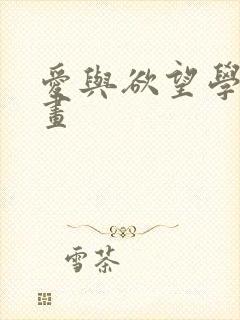 愛與欲望學
畫
雪茶